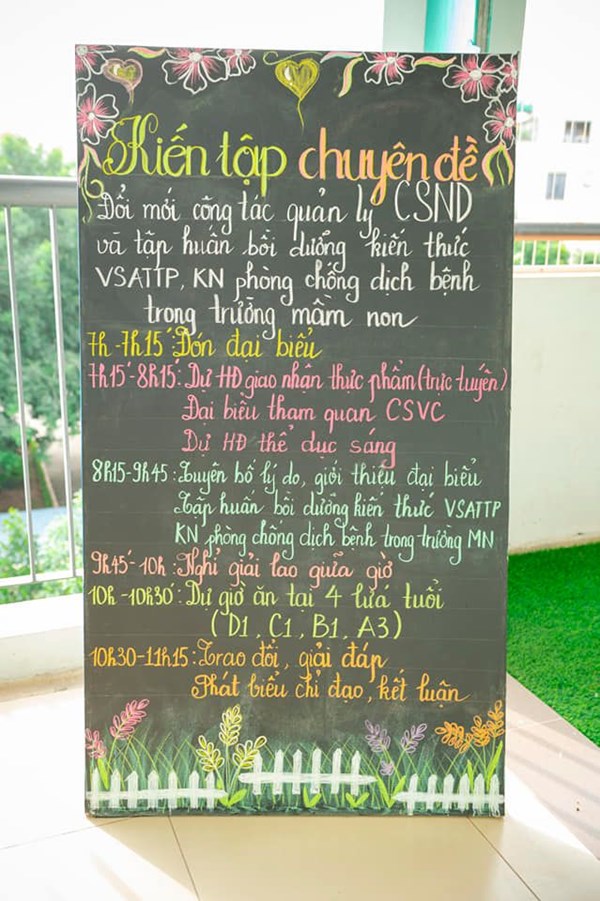 Kiến tập chuyên đề
Đổi mới công tác quản lý CSND
và tập huấn bồi dưỡng kiến thức
VSATTP, KN phòng chống dịch bệnh
trong trường mầm non
7h-7h15' Đón đại biểu
7h15'-8h15': Dự HĐ giao nhận thực phẩm (trực tuyến)
Đại biểu tham quan CSVC
Dự HĐ thể dục sáng
8h15-9h45: Tuyên bố lý do, giới thiệu đại biểu
Tập huấn bồi dưỡng kiến thức VSATTP
KN phòng chống dịch bệnh trong trường MN
9h45'-10h: Nghỉ giải lao giữa giờ
10h-10h30': Dự giờ ăn tại 4 lứa tuổi
(D1, C1, B1, A3)
10h30-11h15: Trao đổi, giải đáp
Phát biểu chỉ đạo, kết luận